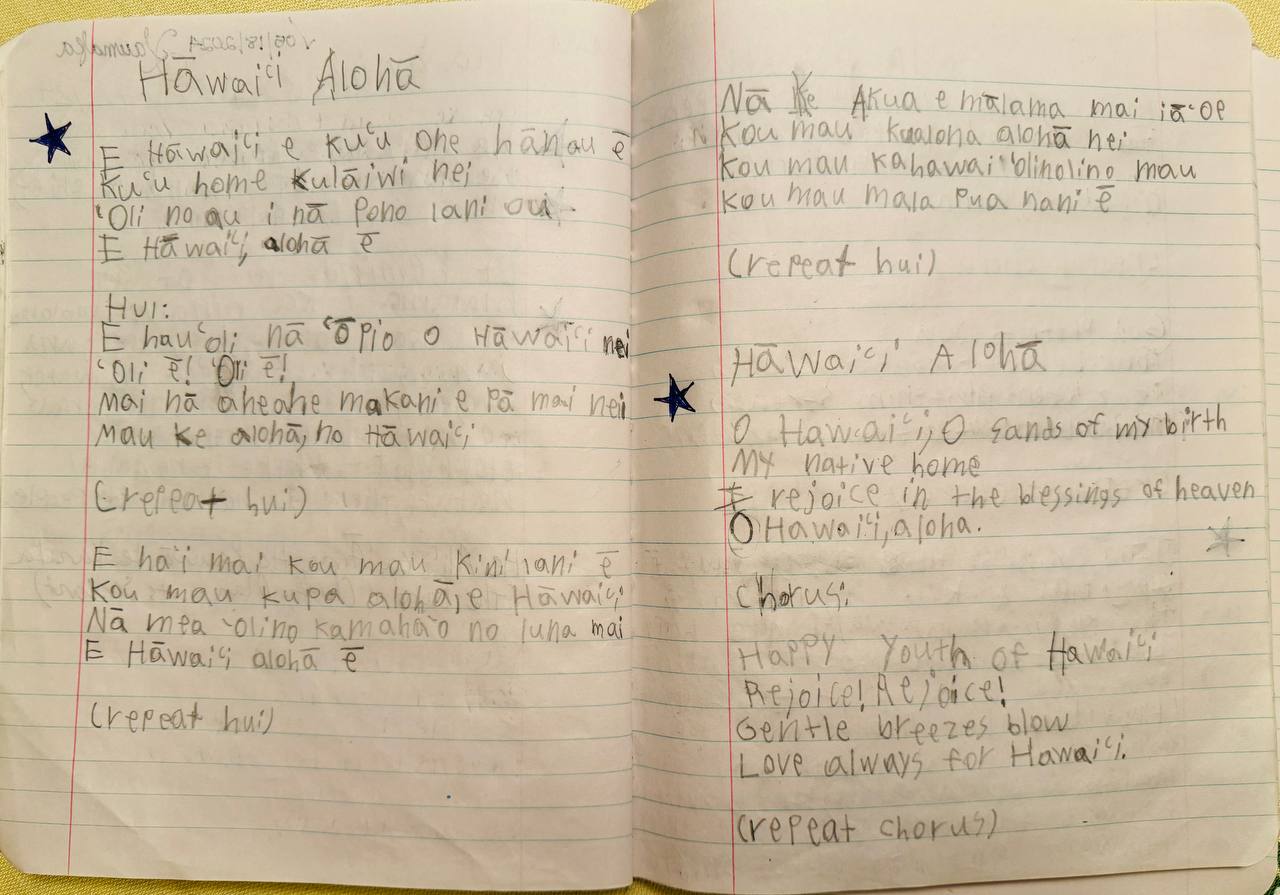 Hāwaiʻi Alohā
E Hāwaiʻi e kuʻu one hānau ē
Kuʻu home kulāiwi nei
ʻOli no au i nā pono lani ou
E Hāwaiʻi, alohā ē
Hui:
E hauʻoli nā ʻōpio o Hāwaiʻi nei
ʻOli ē! ʻOli ē!
Mai nā aheahe makani e pā mai nei
Mau ke alohā, no Hāwaiʻi
(repeat hui)
E haʻi mai kou mau kini lani ē
Kou mau kupa alohā, e Hāwaiʻi
Nā mea ʻolino kamahāʻo no luna mai
E Hāwaiʻi alohā ē
(repeat hui)
Nā Ke Akua e mālama mai iāʻoe
Kou mau kualona alohā nei
Kou mau kahawai ʻolinolino mau
Kou mau mala pua nani ē
(repeat hui)
Hāwaiʻi Alohā
O Hawaiʻi, O sands of my birth
My native home
I rejoice in the blessings of heaven
O Hawaiʻi, aloha.
Chorus:
Happy youth of Hawaiʻi
Rejoice! Rejoice!
Gentle breezes blow
Love always for Hawaiʻi.
(repeat chorus)